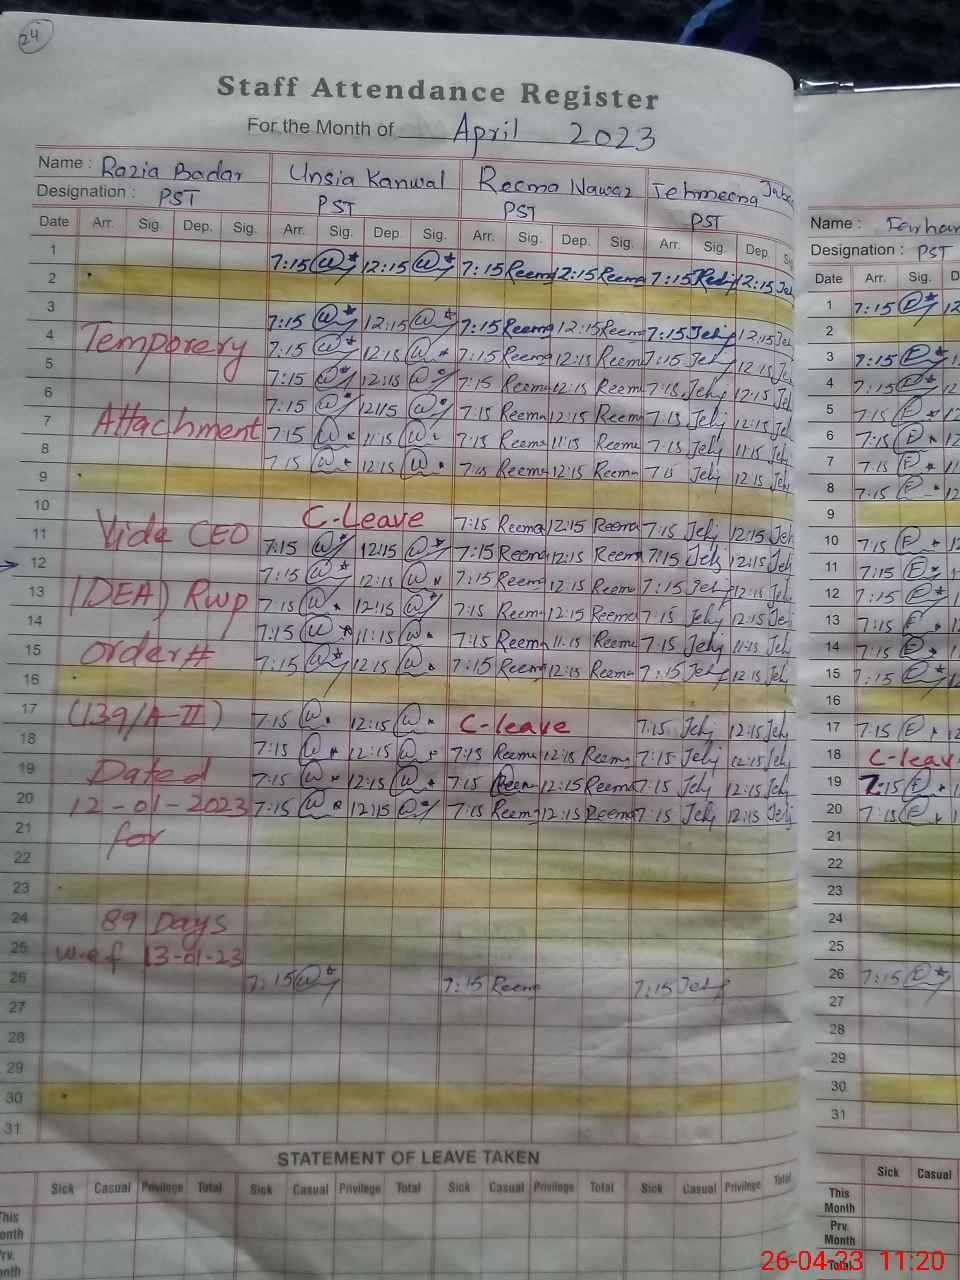 24
Staff Attendance Register
For the Month of April 2023
Name : Razia Badar Unsia Kanwal Reema Nawaz Tehmeena
Designation : PST PST PST PST
Date Arr. Sig. Dep. Sig. Arr. Sig. Dep. Sig. Arr. Sig. Dep. Sig. Arr. Sig. Dep.
1 7:15 12:15 7:15 Reema 12:15 Reema 7:15 12:15
2
3 7:15 12:15 7:15 Reema 12:15 Reema 7:15 Tehj 12:15
4 Temporery 7:15 12:15 7:15 Reema 12:15 Reema 7:15 Tehj 12:15
5 7:15 12:15 7:15 Reema 12:15 Reema 7:15 Tehj 12:15
6 7:15 12:15 7:15 Reema 12:15 Reema 7:15 Tehj 12:15
7 Attachment 7:15 11:15 7:15 Reema 11:15 Reema 7:15 Tehj 11:15
8 7:15 12:15 7:15 Reema 12:15 Reema 7:15 Tehj 12:15
9
10 C-Leave 7:15 Reema 12:15 Reema 7:15 Tehj 12:15
11 Vide CEO 7:15 12:15 7:15 Reema 12:15 Reema 7:15 Tehj 12:15
12 7:15 12:15 7:15 Reema 12:15 Reema 7:15 Tehj 12:15
13 (DEA) Rwp 7:15 12:15 7:15 Reema 12:15 Reema 7:15 Tehj 12:15
14 7:15 11:15 7:15 Reema 11:15 Reema 7:15 Tehj 11:15
15 order # 7:15 12:15 7:15 Reema 12:15 Reema 7:15 Tehj 12:15
16
17 (139/A-II) 7:15 12:15 C-leave 7:15 Tehj 12:15 Tehj
18 7:15 12:15 7:15 Reema 12:15 Reema 7:15 Tehj 12:15 Tehj
19 Dated 7:15 12:15 7:15 Reema 12:15 Reema 7:15 Tehj 12:15 Tehj
20 12-01-2023 7:15 12:15 7:15 Reema 12:15 Reema 7:15 Tehj 12:15 Tehj
21 for
22
23
24 89 Days
25 w.e.f 13-01-23
26 7:15 7:15 Reema 7:15 Tehj
27
28
29
30
31
STATEMENT OF LEAVE TAKEN
Sick Casual Privilege Total Sick Casual Privilege Total Sick Casual Privilege Total Sick Casual Privilege Total
This
Month
Prv.
Month
Name : Farhan
Designation : PST
Date Arr. Sig.
1 7:15
2
3 7:15
4 7:15
5 7:15
6 7:15
7 7:15
8 7:15
9
10 7:15
11 7:15
12 7:15
13 7:15
14 7:15
15 7:15
16
17 7:15
18 C-leav
19 7:15
20 7:15
21
22
23
24
25
26 7:15
27
28
29
30
31
Sick Casual
This
Month
Prv.
Month
Total
26-04-23 11:20